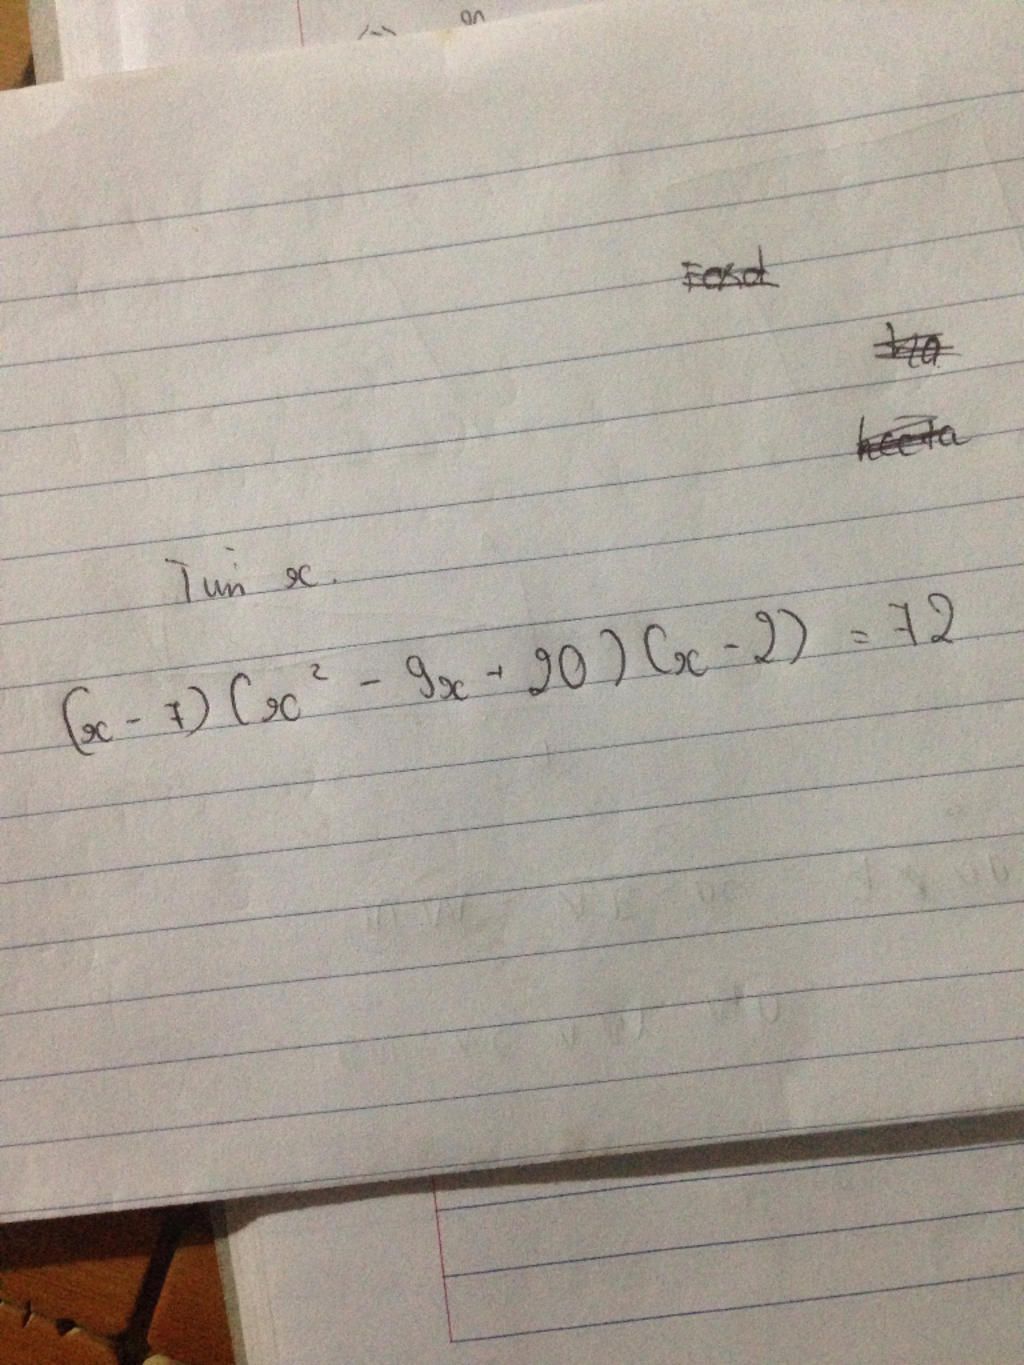 Tìm x.
(x - 7)(x² - 9x + 20)(x - 2) = 72